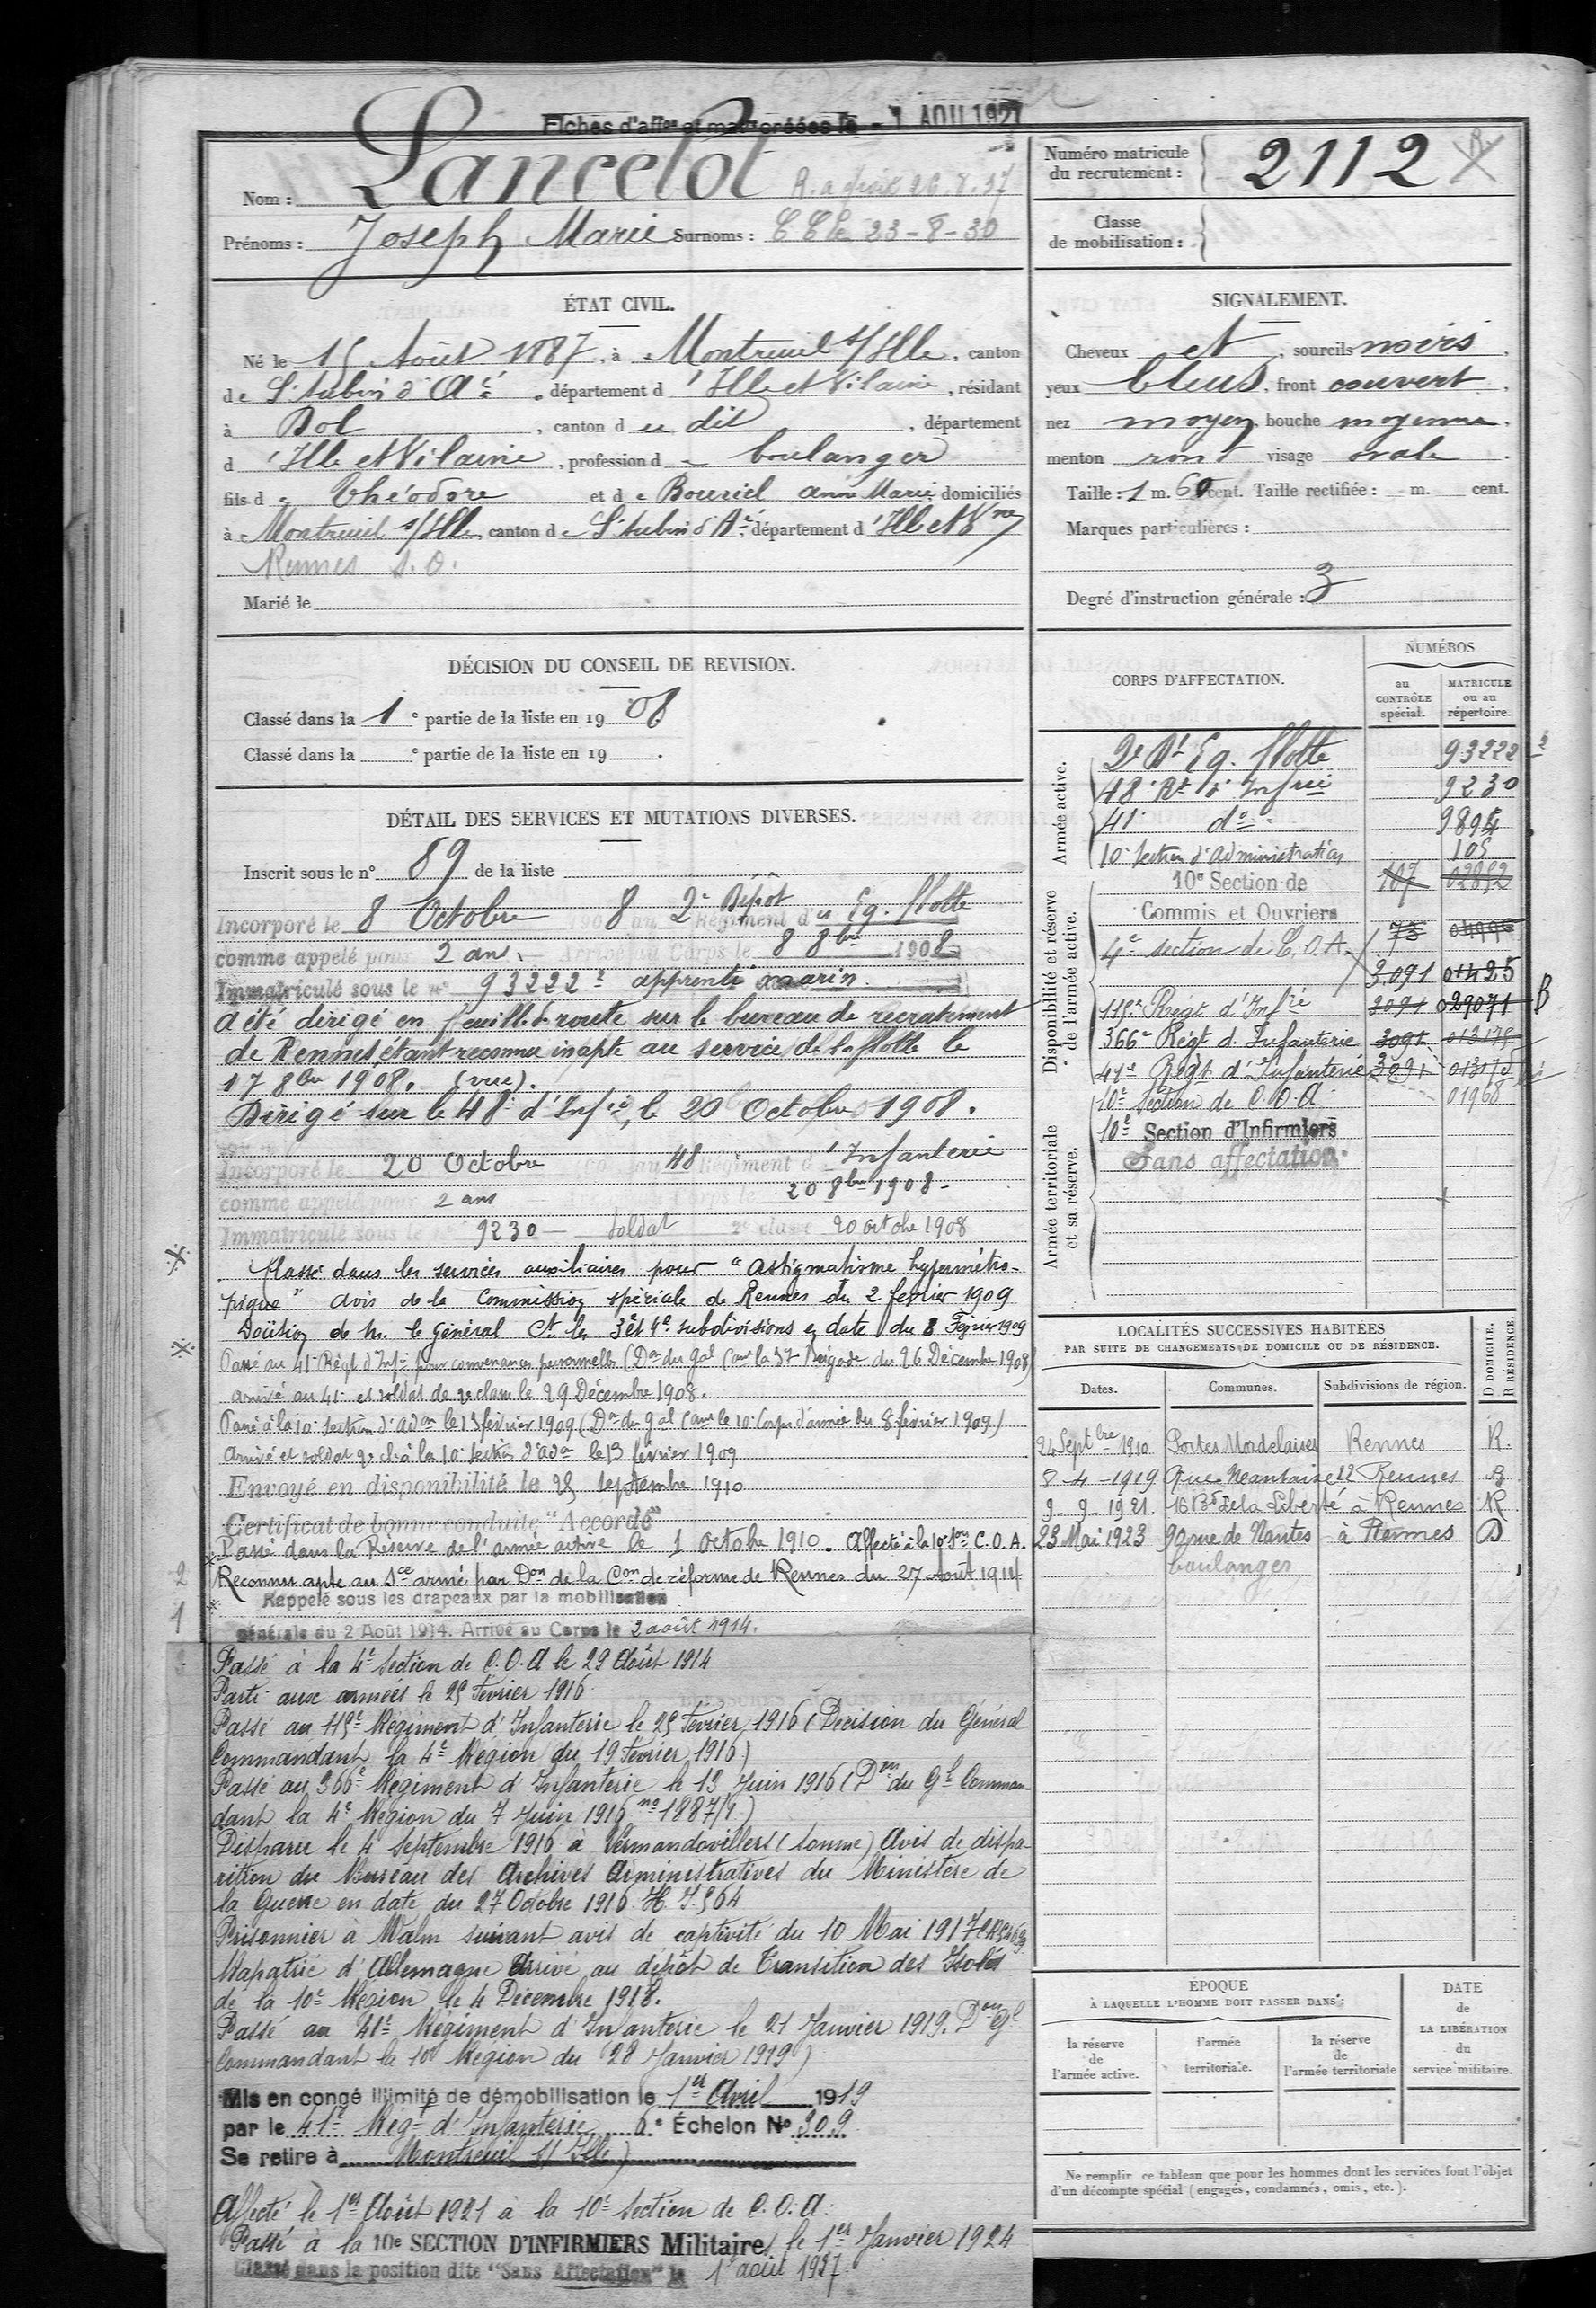 Fiches d'aff on et mat on créées le - 1 AOU 1927
Nom : Lancelot
R. 26.8.37
Prénoms : Joseph Marie Surnoms : 23-8-30
Numéro matricule du recrutement : 2112
Classe de mobilisation :
ÉTAT CIVIL.
Né le 15 Août 1887, à Montreuil s/Ille, canton
de St Aubin d'Aé, département d'Ille et Vilaine, résidant
à Dol, canton du dit, département
d'Ille et Vilaine, profession de boulanger
fils de Théodore et de Bouriel Anne Marie domiciliés
à Montreuil s/Ille, canton de St Aubin d'Aé, département d'Ille et Vne
Rennes S.O.
Marié le
SIGNALEMENT.
Cheveux et, sourcils noirs,
yeux bleus, front couvert,
nez moyen, bouche moyenne,
menton rond visage ovale.
Taille : 1 m. 60 cent. Taille rectifiée : m. cent.
Marques particulières :
Degré d'instruction générale : 3
DÉCISION DU CONSEIL DE REVISION.
Classé dans la 1e partie de la liste en 1908
Classé dans la e partie de la liste en 19 .
DÉTAIL DES SERVICES ET MUTATIONS DIVERSES.
Inscrit sous le n° 89 de la liste
Incorporé le 8 Octobre 1908 au 2e Dépôt Régiment des Eq. flotte
comme appelé pour 2 ans. Arrivé au Corps le 8 8bre 1908
Immatriculé sous le n° 93222 2 apprenti marin.
a été dirigé en feuille de route sur le bureau de recrutement
de Rennes étant reconnu inapte au service de la flotte le
17 8bre 1908. (vue).
Dirigé sur le 48e d'Infie, le 20 Octobre 1908.
Incorporé le 20 Octobre au 48 Régiment d'Infanterie
comme appelé pour 2 ans Corps le 20 8bre 1908 -
Immatriculé sous le n° 9230 - soldat 2e classe 20 octobre 1908
Classé dans les services auxiliaires pour "astigmatisme hypermétro-
pique" avis de la Commission spéciale de Rennes du 2 février 1909
Décision de M. le Général Ct les 3e et 4e subdivisions en date du 8 Février 1909
Passé au 41e Régt d'Infie pour convenances personnelles (Don du gal Cant la 37e Brigade du 26 Décembre 1908)
arrivé au 41e et soldat de 2e classe le 29 Décembre 1908.
Passé à la 10e section d'adon le 13 février 1909 (Don du gal Cant le 10e Corps d'armée du 8 février 1909)
arrivé et soldat 2e cl. à la 10e section d'adon le 13 février 1909
Envoyé en disponibilité le 25 septembre 1910
Certificat de bonne conduite "Accordé"
Passé dans la Réserve de l'armée active le 1 octobre 1910. Affecté à la 10e son C.O.A.
Reconnu apte au sce armé par Don de la Con de réforme de Rennes du 27 août 1914
Rappelé sous les drapeaux par la mobilisation
générale du 2 Août 1914. Arrivé au Corps le 2 août 1914.
Passé à la 4e Section de C.O.A le 29 Août 1914
Parti aux armées le 25 Février 1916
Passé au 115e Régiment d'Infanterie le 25 Février 1916 (Décision du Général
Commandant la 4e Région du 19 Février 1916)
Passé au 366e Régiment d'Infanterie le 13 Juin 1916 (Don du Gl Comman-
dant la 4e Région du 7 Juin 1916 no 1887/1)
Disparu le 4 Septembre 1916 à Vermandovillers (Somme) Avis de dispa-
rition du Bureau des Archives Administratives du Ministère de
la Guerre en date du 27 Octobre 1916.
Prisonnier à Walm suivant avis de captivité du 10 Mai 1917
Rapatrié d'Allemagne Arrivé au dépôt de Transition des Isolés
de la 10e Région le 4 Décembre 1918.
Passé au 41e Régiment d'Infanterie le 21 Janvier 1919. Don Gl
Commandant la 10e Région du 28 Janvier 1919)
Mis en congé illimité de démobilisation le 1er Avril 1919
par le 41e Régt d'Infanterie 6e Échelon No 309
Se retire à Montreuil s/ Ille)
Affecté le 1er Août 1921 à la 10e Section de C.O.A.
Passé à la 10e SECTION D'INFIRMIERS Militaires le 1er Janvier 1924
Classé dans la position dite "Sans Affectation" le 1er août 1927
CORPS D'AFFECTATION.
NUMÉROS
au CONTRÔLE spécial.
MATRICULE ou au répertoire.
Armée active.
2e Dt Eq. flotte 93222 2
48e Rt d'Infrie 9230
41e do 9894
10e section d'administration 105
Disponibilité et réserve de l'armée active.
10e Section de 107 02852
Commis et Ouvriers
4e section de C.O.A. 73
3.091 01425
115e Régt d'Infie 3091 029071 B
366e Régt d'Infanterie 3091 013175
41e Régt d'Infanterie 3091 013175
Armée territoriale et sa réserve.
10e Section de C.O.A 01968
10e Section d'Infirmiers
Sans affectation.
LOCALITÉS SUCCESSIVES HABITÉES
PAR SUITE DE CHANGEMENTS DE DOMICILE OU DE RÉSIDENCE.
D DOMICILE. R RÉSIDENCE.
Dates. Communes. Subdivisions de région.
24 Septbre 1910 Portes Mordelaises Rennes R.
8-4-1919 Rue Nantaise 22 Rennes R
9-9-1921. 16 Bd de la Liberté à Rennes R
23 Mai 1923 90 rue de Nantes à Rennes D
boulanger
ÉPOQUE
À LAQUELLE L'HOMME DOIT PASSER DANS :
la réserve de l'armée active.
l'armée territoriale.
la réserve de l'armée territoriale
DATE de LA LIBÉRATION du service militaire.
Ne remplir ce tableau que pour les hommes dont les services font l'objet
d'un décompte spécial (engagés, condamnés, omis, etc.).